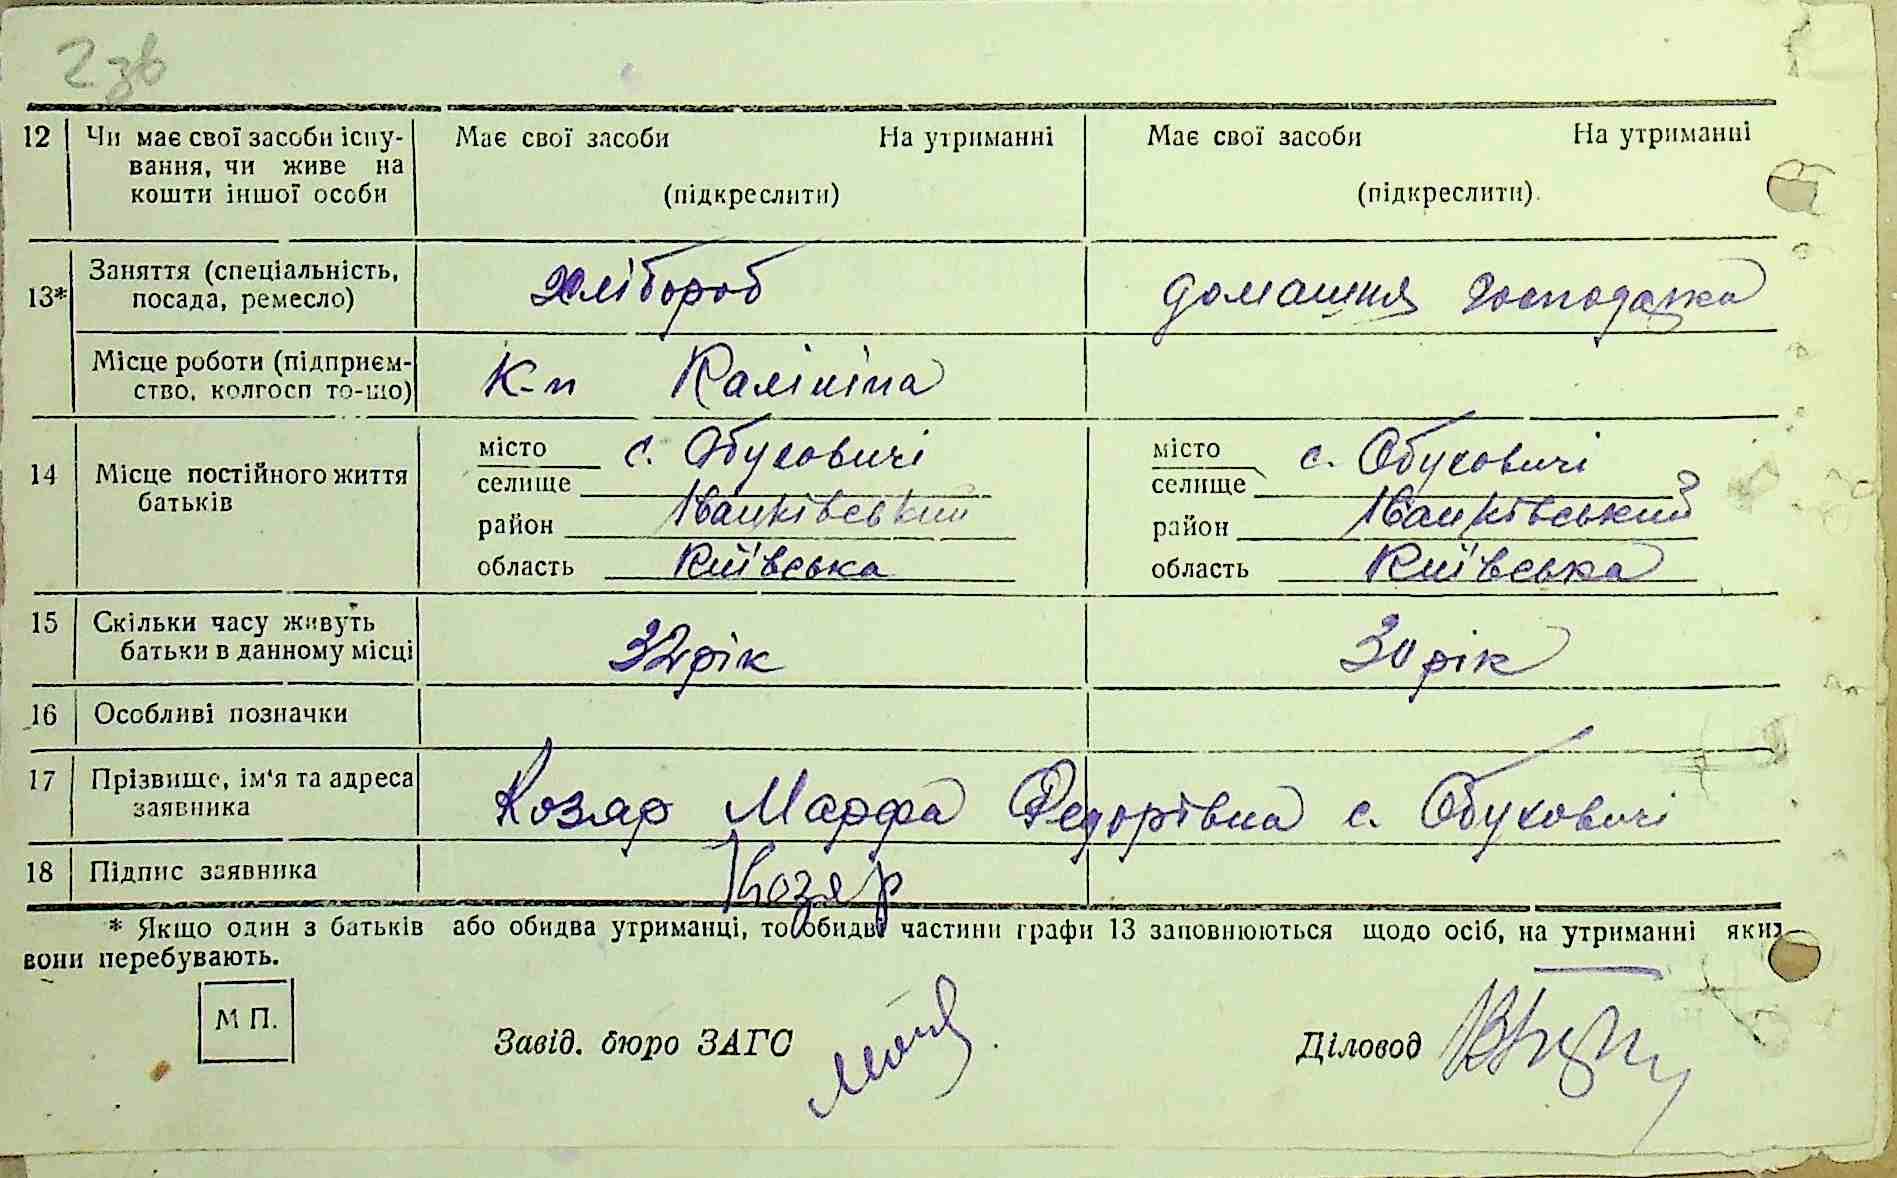 2 зв
12 Чи має свої засоби існу- Має свої засоби На утриманні Має свої засоби На утриманні
вання, чи живе на
кошти іншої особи (підкреслити) (підкреслити).
13* Заняття (спеціальність, хлібороб домашня господарка
посада, ремесло)
Місце роботи (підприєм- К-п Калініна
ство, колгосп то-що)
14 Місце постійного життя місто с. Обуховичі місто с. Обуховичі
батьків селище селище
район Іванківський район Іванківський
область Київська область Київська
15 Скільки часу живуть 32 рік 30 рік
батьки в данному місці
16 Особливі позначки
17 Прізвище, ім'я та адреса Козяр Марфа Федорівна с. Обуховичі
заявника
18 Підпис заявника Козяр
* Якщо один з батьків або обидва утриманці, то обидві частини графи 13 заповнюються щодо осіб, на утриманні яких
вони перебувають.
М П. Завід. бюро ЗАГС Діловод